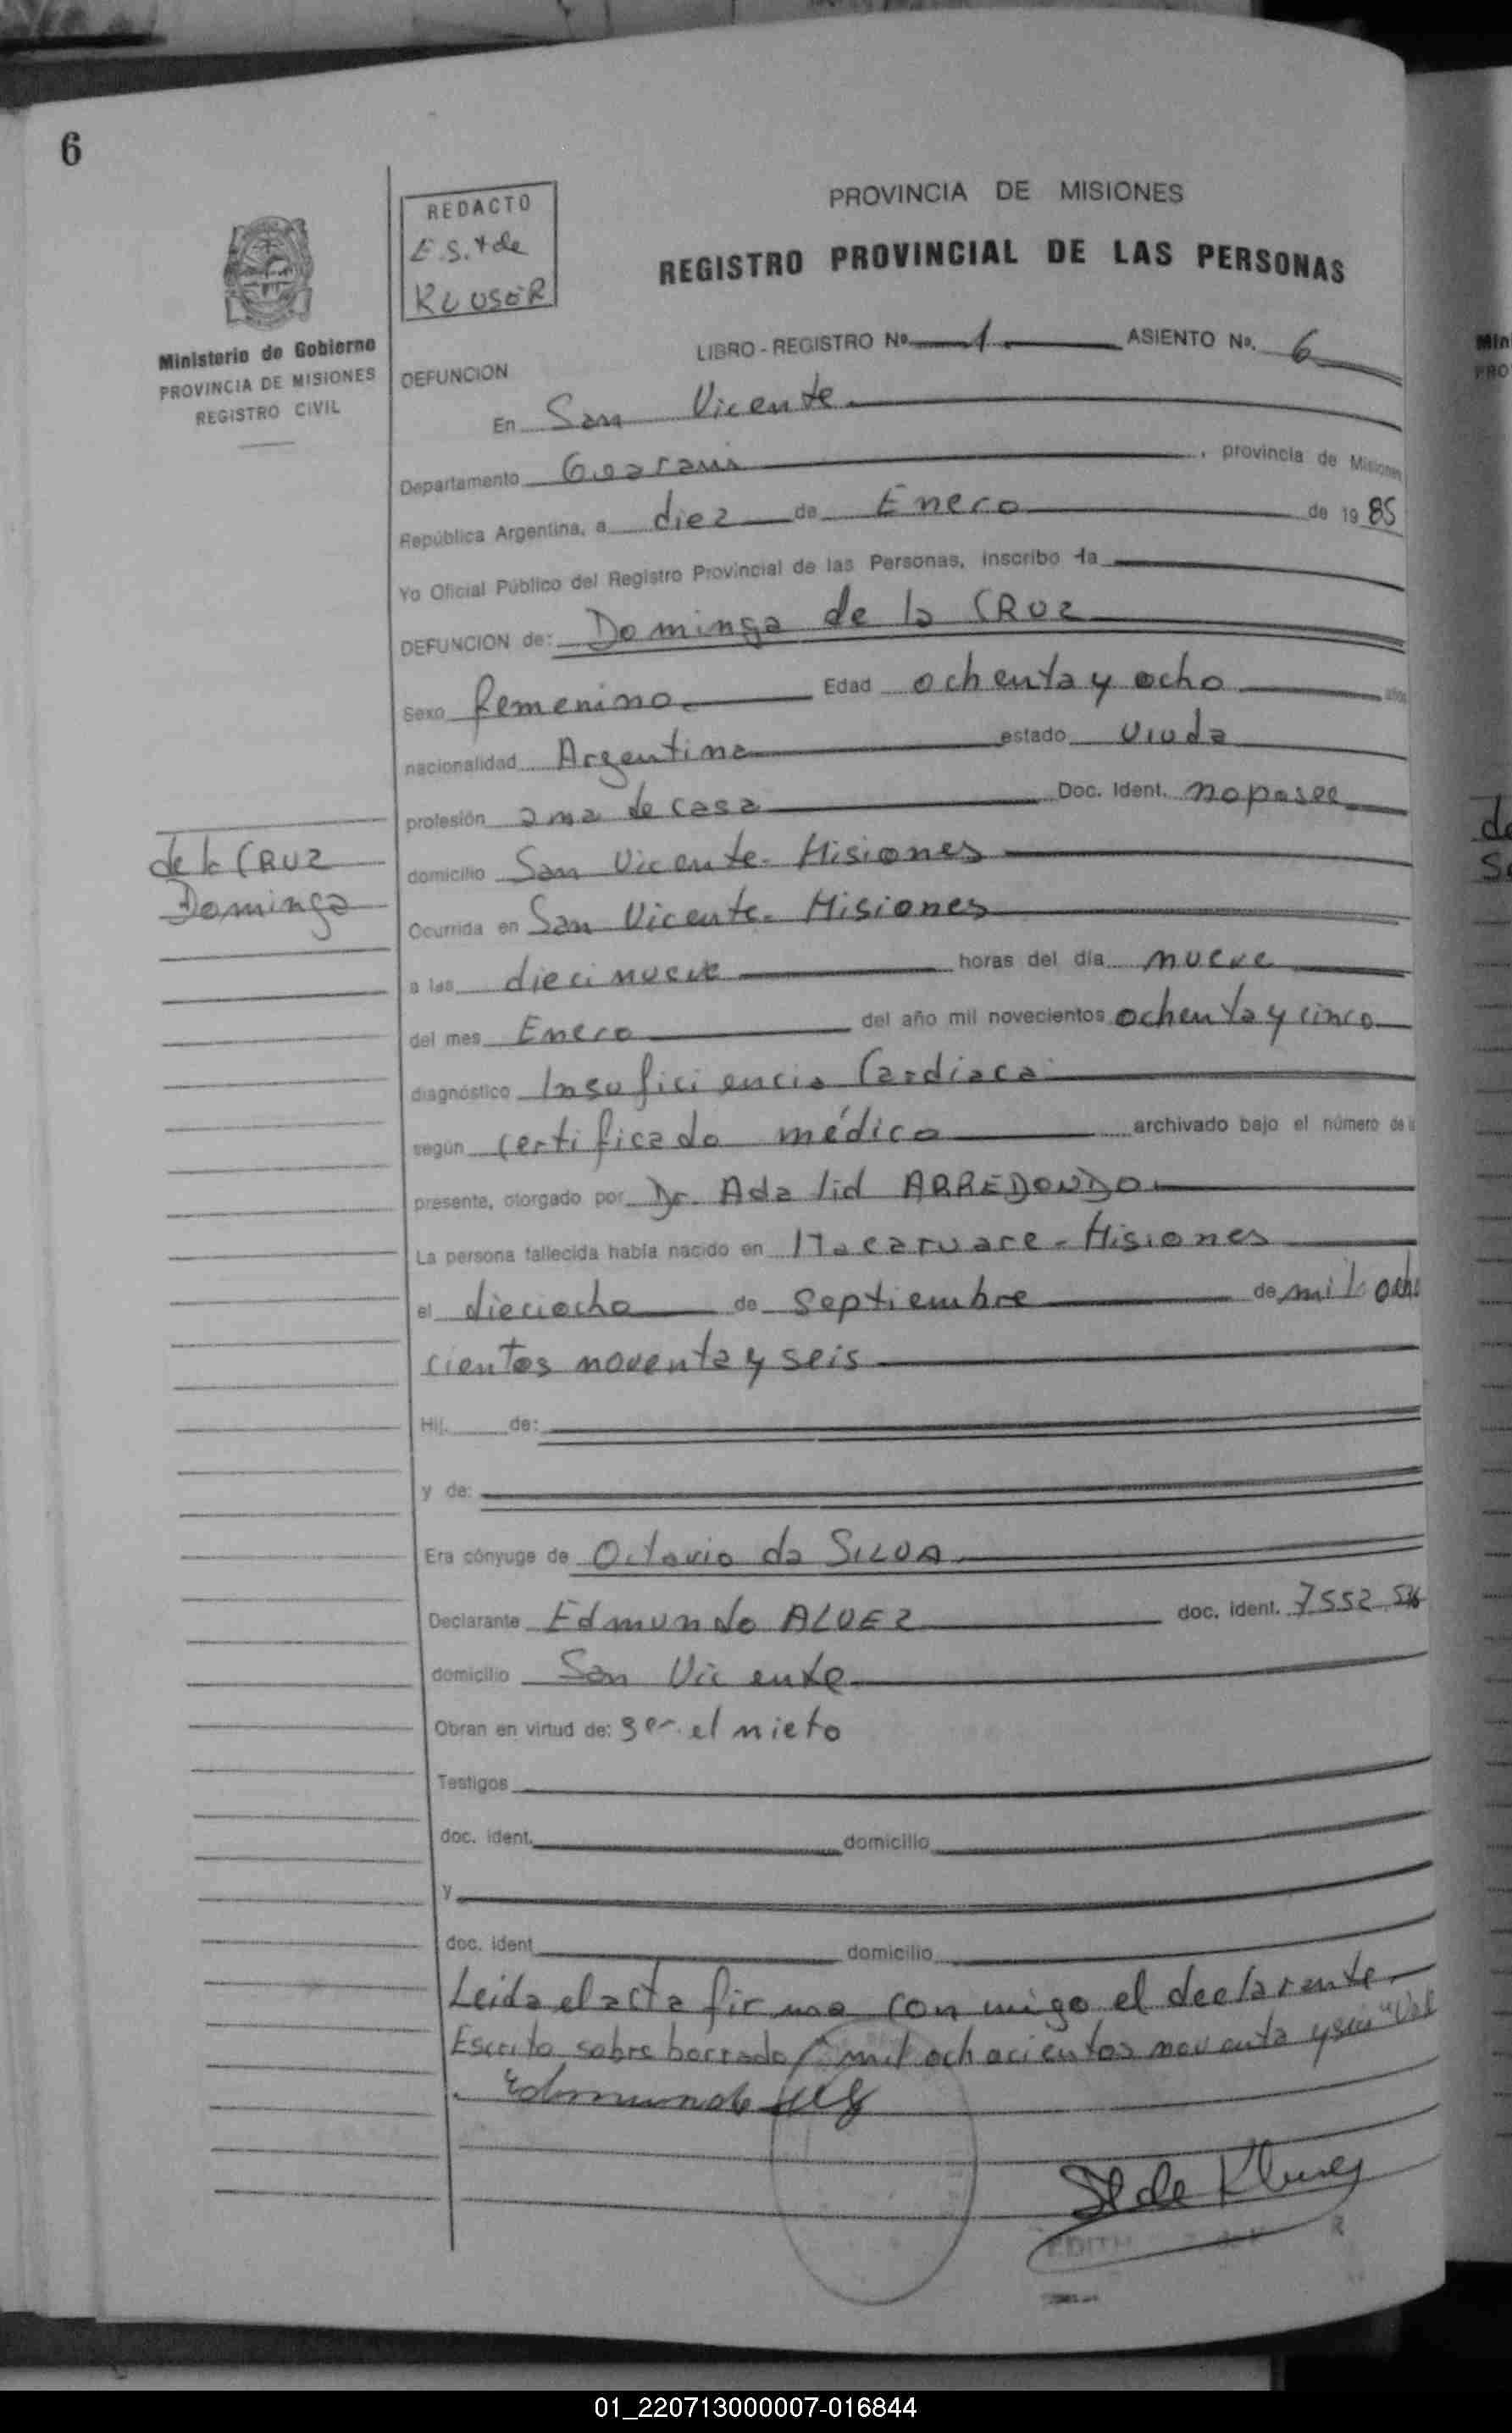 6
REDACTO
E.S. de
KLUSER
PROVINCIA DE MISIONES
REGISTRO PROVINCIAL DE LAS PERSONAS
Ministerio de Gobierno
PROVINCIA DE MISIONES
REGISTRO CIVIL
LIBRO - REGISTRO Nº 1 ASIENTO Nº. 6
DEFUNCION
En San Vicente
Departamento Guarani, provincia de Misiones
República Argentina, a diez de Enero de 1985
Yo Oficial Público del Registro Provincial de las Personas, inscribo la
DEFUNCION de: Dominga de la CRUZ
Sexo femenino Edad ochenta y ocho años
nacionalidad Argentina estado viuda
profesión ama de casa Doc. Ident. no posee
de la CRUZ
Dominga
domicilio San Vicente - Misiones
Ocurrida en San Vicente - Misiones
a las diecinueve horas del día nueve
del mes Enero del año mil novecientos ochenta y cinco
diagnóstico Insuficiencia Cardiaca
según certificado médico archivado bajo el número de la
presente, otorgado por Dr. Adalid ARREDONDO
La persona fallecida había nacido en Itacaruare - Misiones
el dieciocho de Septiembre de mil ocho
cientos noventa y seis
Hij. de:
y de:
Era cónyuge de Octavio da SILVA
Declarante Edmundo ALVEZ doc. ident. 7552 536
domicilio San Vicente
Obran en virtud de: ser el nieto
Testigos
doc. ident. domicilio
y
doc. ident domicilio
Leida el acta firma conmigo el declarante
Escrito sobre borrado "mil ochocientos noventa y seis" Vale
Edmundo
de Kluser
EDITH
01_220713000007-016844